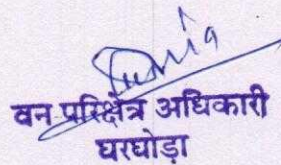 वन परिक्षेत्र अधिकारी
घरघोड़ा